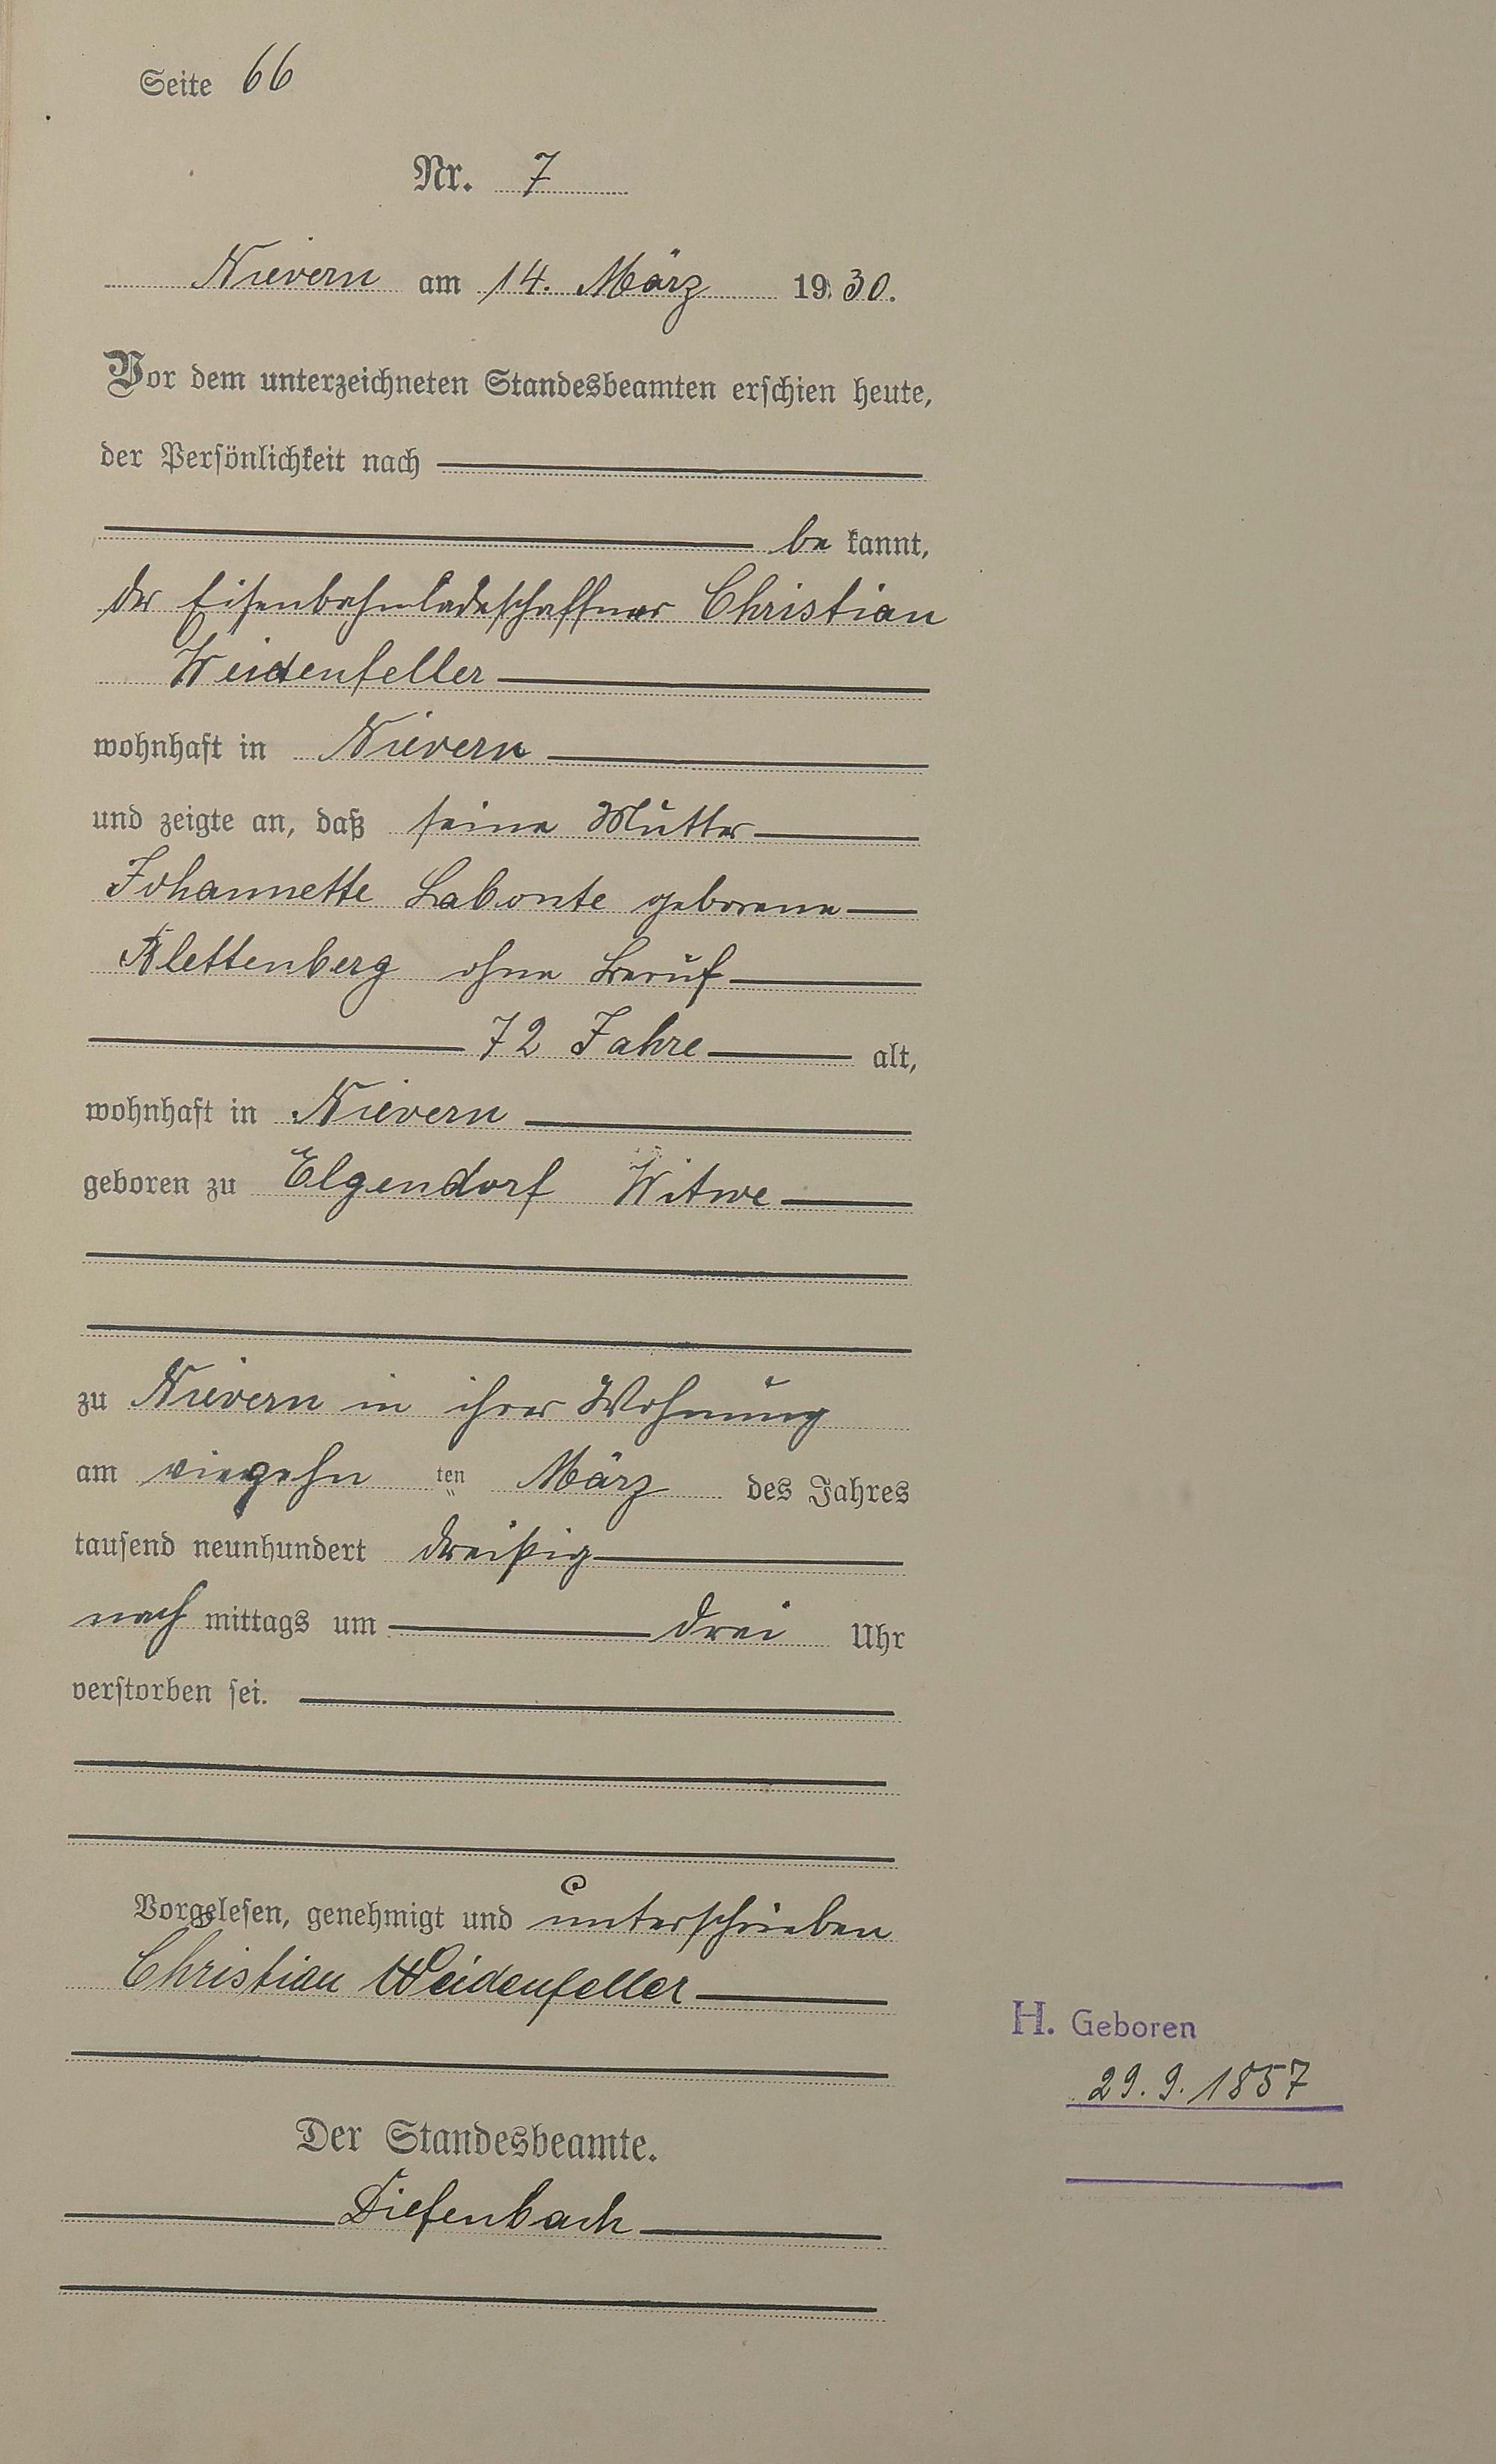 Seite 66
Nr. 7
Nievern am 14. März 1930.
Vor dem unterzeichneten Standesbeamten erschien heute,
der Persönlichkeit nach
be kannt,
der Eisenbahnladeschaffner Christian
Weidenfeller
wohnhaft in Nievern
und zeigte an, daß seine Mutter
Johannette Labonte geborene
Klettenberg ohne Beruf
72 Jahre alt,
wohnhaft in Nievern
geboren zu Elgendorf Witwe
zu Nievern in ihrer Wohnung
am vierzehn ten März des Jahres
tausend neunhundert dreißig
nach mittags um drei Uhr
verstorben sei.
Vorgelesen, genehmigt und unterschrieben
Christian Weidenfeller
H. Geboren
29. 9. 1857
Der Standesbeamte.
Diefenbach